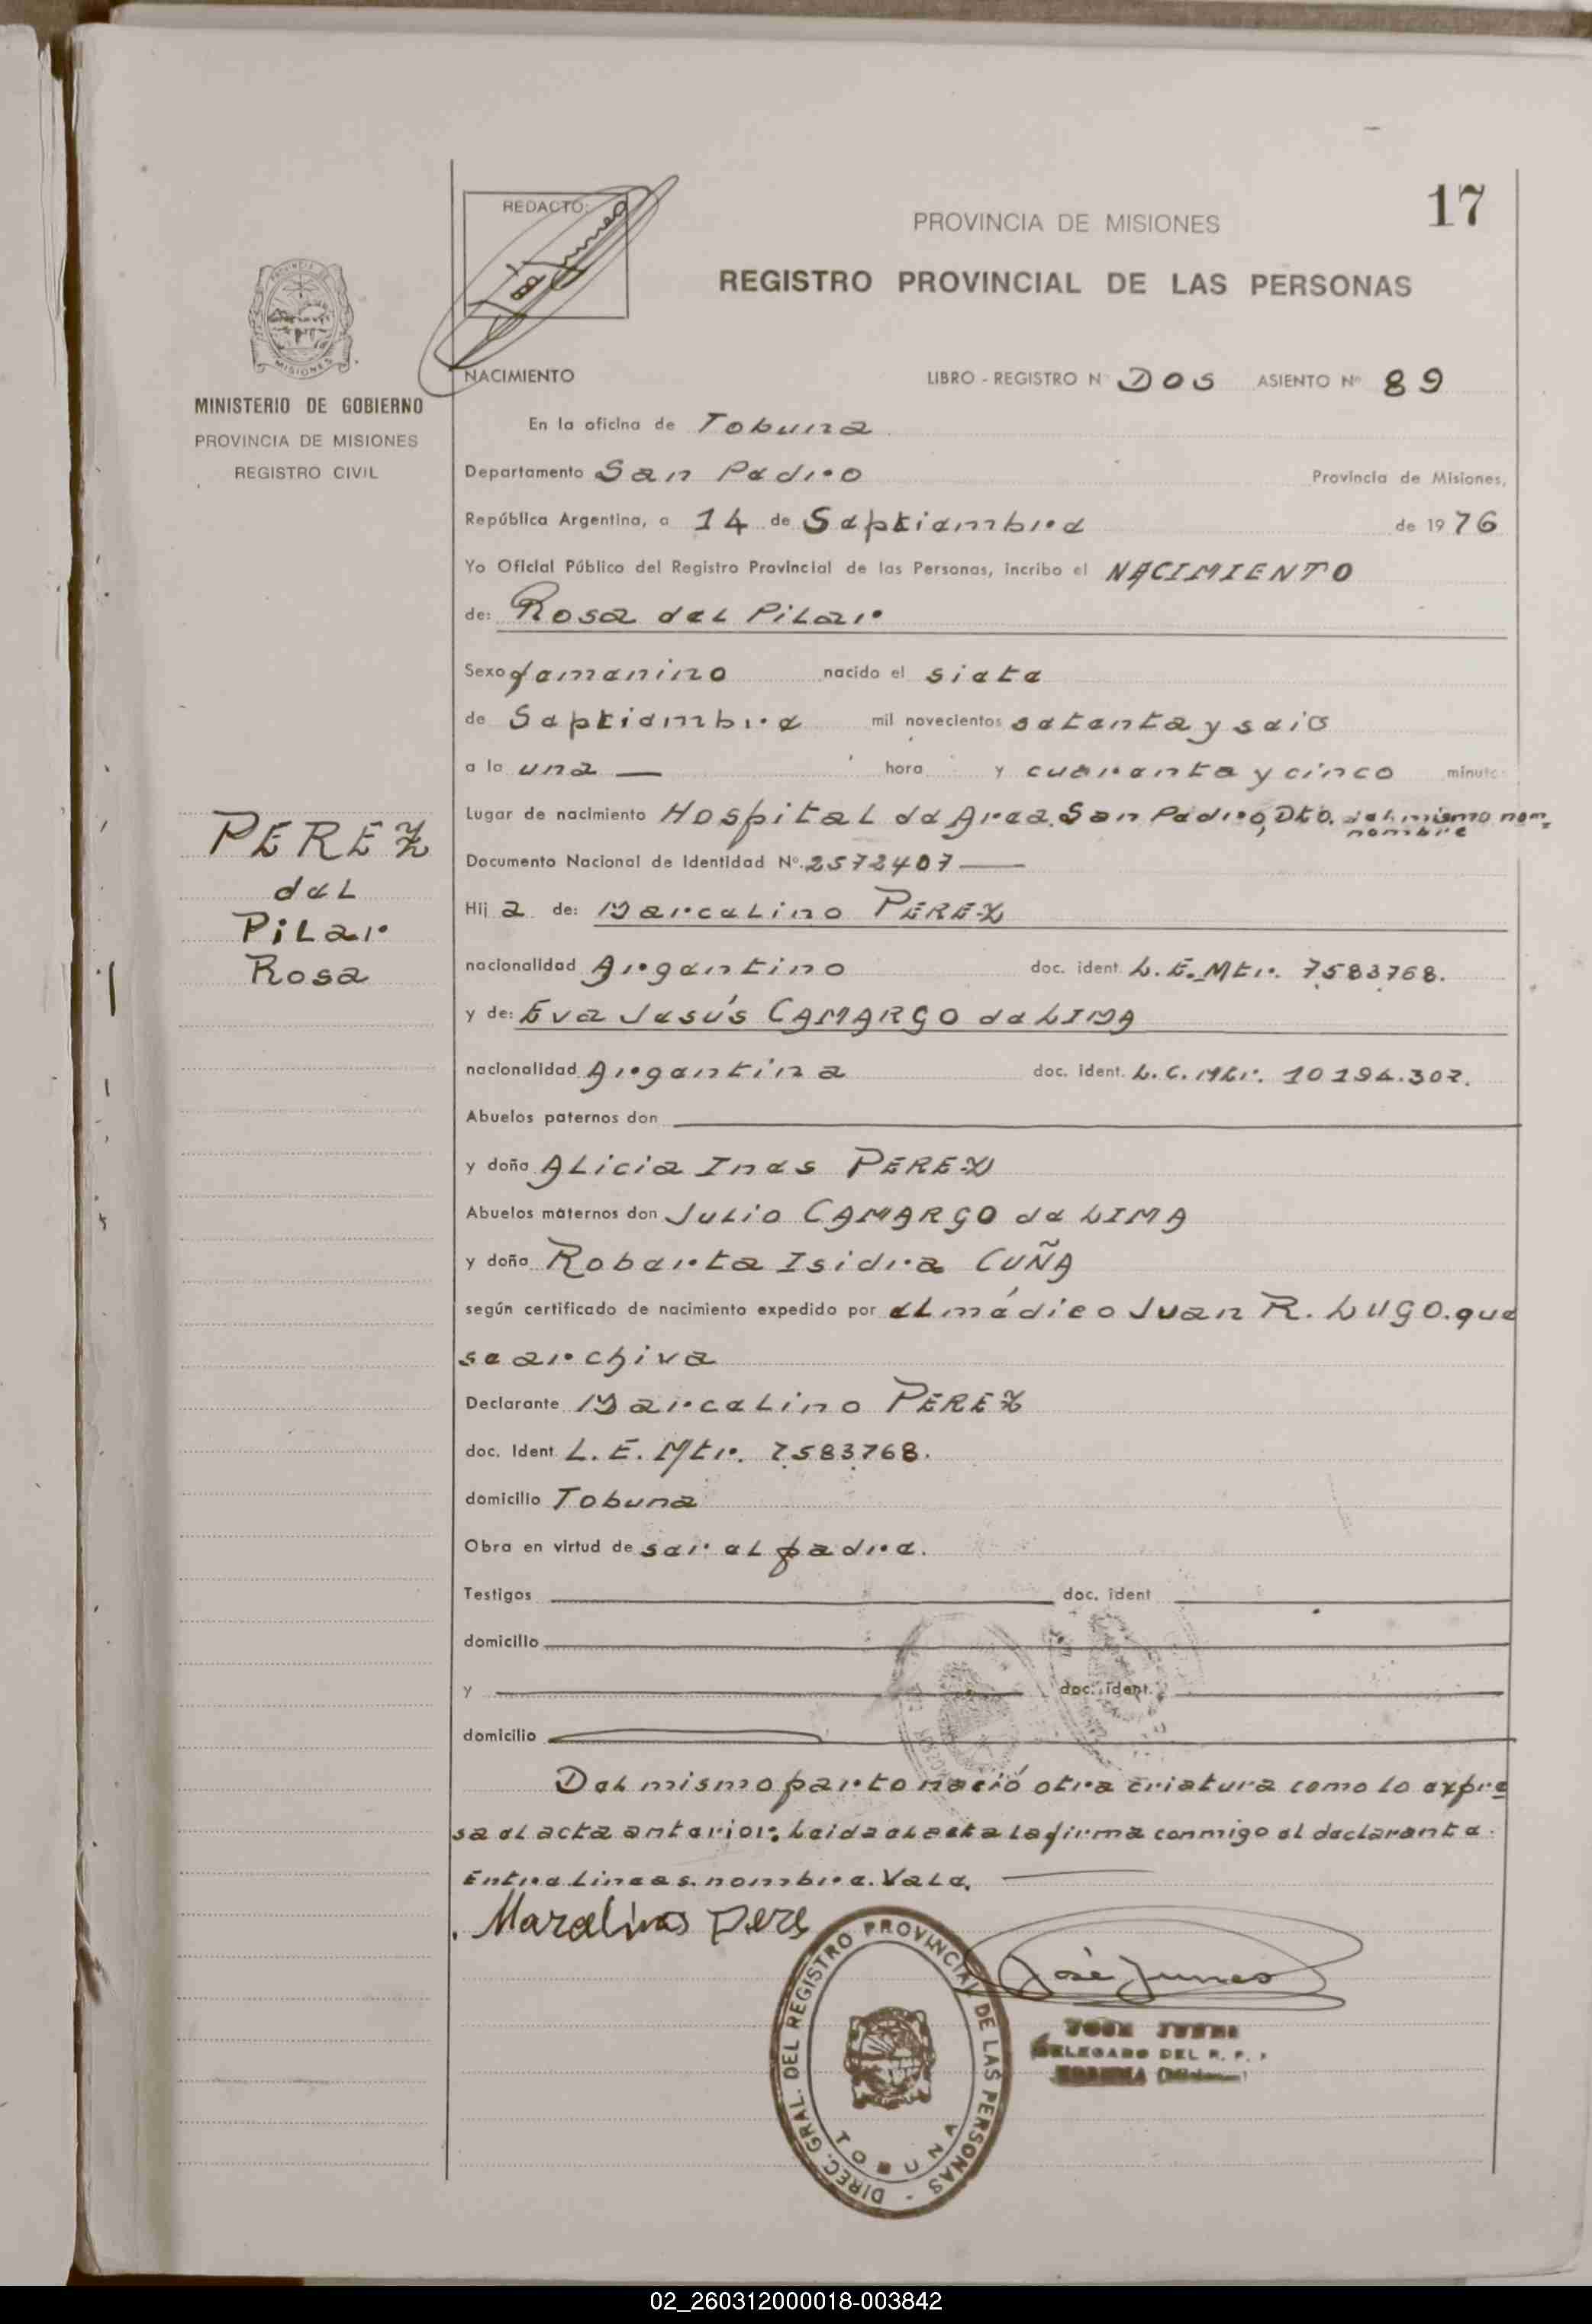 17
REDACTO:
PROVINCIA DE MISIONES
REGISTRO PROVINCIAL DE LAS PERSONAS
MISIONES
MINISTERIO DE GOBIERNO
PROVINCIA DE MISIONES
REGISTRO CIVIL
PEREZ
del
Pilar
Rosa
NACIMIENTO LIBRO - REGISTRO N Dos ASIENTO Nº 89
En la oficina de Tobuna
Departamento San Pedro Provincia de Misiones,
República Argentina, a 14 de Septiembre de 1976
Yo Oficial Público del Registro Provincial de las Personas, incribo el NACIMIENTO
de: Rosa del Pilar
Sexo femenino nacido el siete
de Septiembre mil novecientos setenta y seis
a la una — hora y cuarenta y cinco minuto
Lugar de nacimiento Hospital de Area. San Pedro, Dto. del mismo nom,
nombre
Documento Nacional de Identidad Nº. 2572407 —
Hij a de: Marcelino PEREZ
nacionalidad Argentino doc. ident. L. E. Mtr. 7.583.768.
y de: Eva Jesús CAMARGO de LIMA
nacionalidad Argentina doc. ident. L. C. Mtr. 10194.302.
Abuelos paternos don
y doña Alicia Ines PEREZ
Abuelos maternos don Julio CAMARGO de LIMA
y doña Roberta Isidra CUÑA
según certificado de nacimiento expedido por el médico Juan R. LUGO. que
se archiva
Declarante Marcelino PEREZ
doc. Ident. L. E. Mtr. 7.583.768.
domicilio Tobuna
Obra en virtud de ser el padre.
Testigos doc. ident
domicilio
y doc. ident.
domicilio
Del mismo parto nació otra criatura como lo expre
sa el acta anterior. Leida el acta la firma conmigo el declarante.
Entre lineas. nombre. Vale. —
Marcelino Peres
José Junes
DIREC. GRAL. DEL REGISTRO PROVINCIAL DE LAS PERSONAS -
TOBUNA
DELEGADO DEL R. P.
(Misiones)
02_260312000018-003842